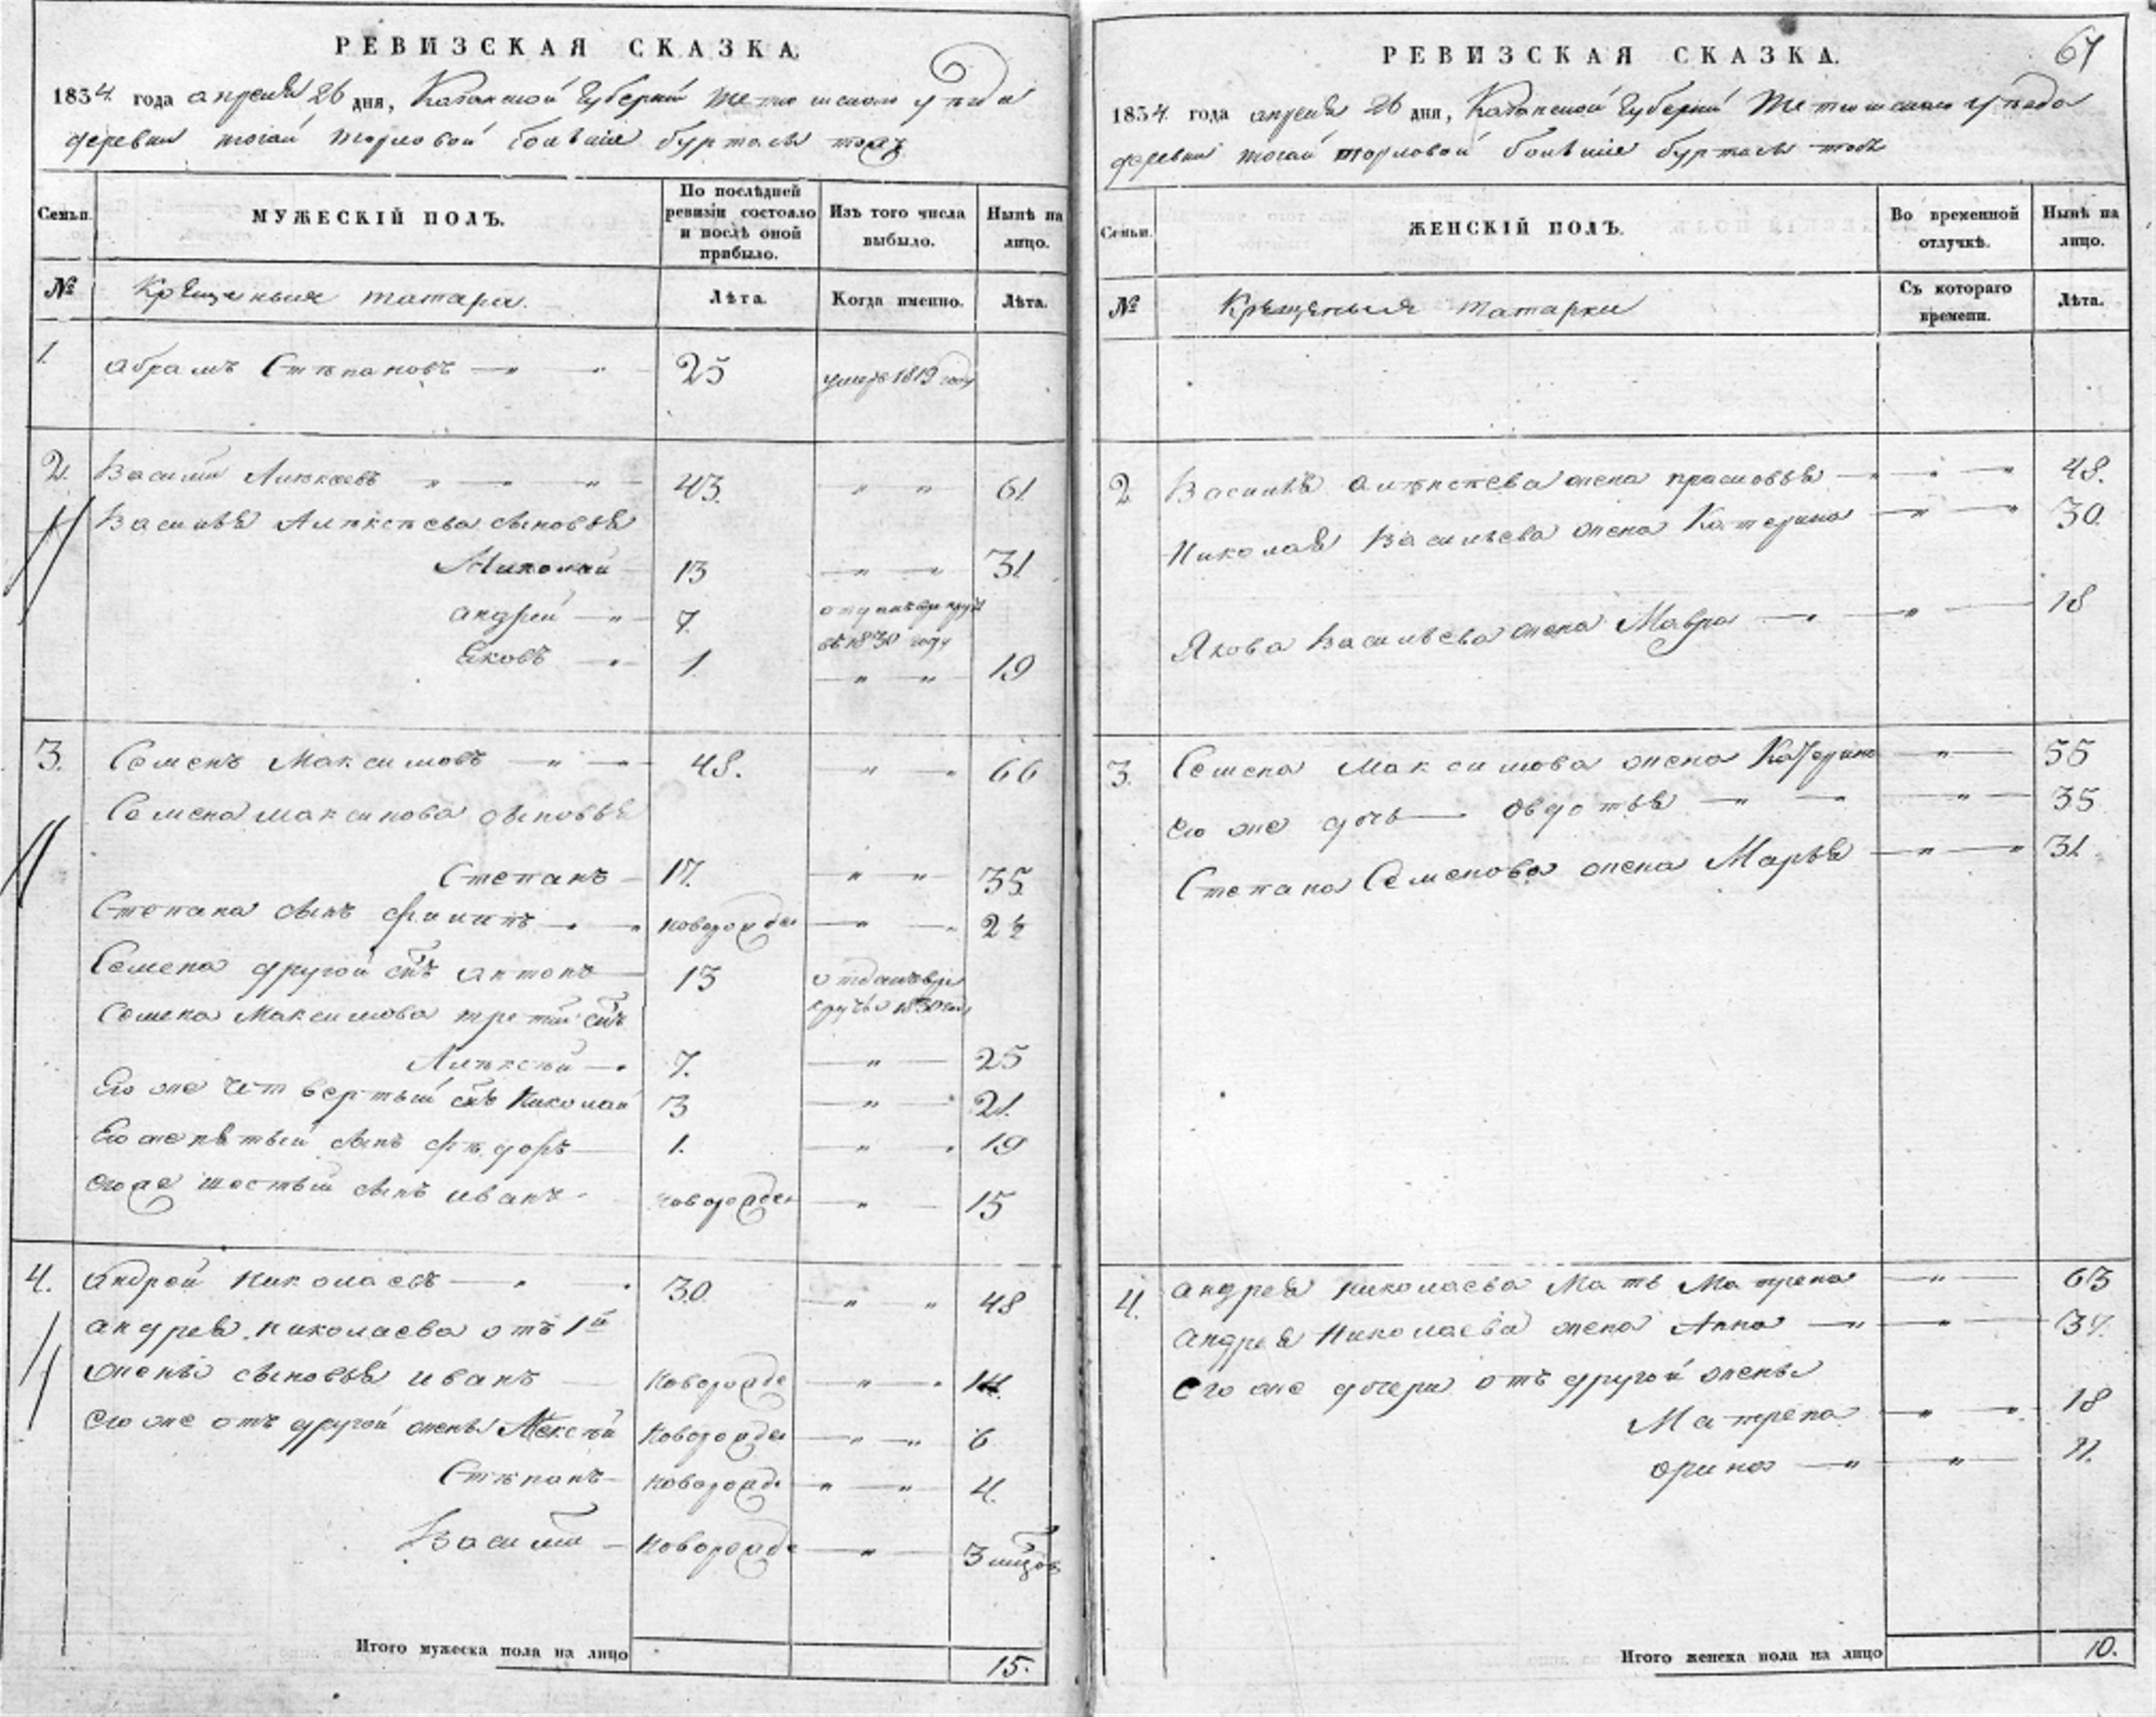 РЕВИЗСКАЯ СКАЗКА.
1834 года апреля 26 дня, Казанской Губернии Тетюшскаго уезда
деревни тогай болшие буртасы тожъ
Семьи.
МУЖЕСКІЙ ПОЛЪ.
По послѣдней ревизіи состояло и послѣ оной прибыло.
Изъ того числа выбыло.
Нынѣ на лицо.
№
Крещеныя татары.
Лѣта.
Когда именно.
Лѣта.
1. Абрамъ Степановъ 25 умеръ 1819 году
2. Василий 43 61
Василья сыновья
Миколай 13 31
андрей 7. отданъ
въ 1830 году
Яковъ 1. 19
3. Семенъ Максимовъ 48. 66
Семена максимова сыновья
Степанъ 17. 35
Степана сынъ филипъ новорожде 2½
Семена другой сынъ антонъ 13 отданъ
Семена Максимова третий сынъ 1830
Алексей 7. 25
Его же четвертый сынъ Николай 3 21.
Его же пятый сынъ федоръ 1. 19
его же шестый сынъ иванъ новорожден 15
4. андрей николаевъ 30 48
андрея николаева отъ 1й
жены сыновья иванъ новорожде 14.
его же отъ другой жены Алексей новорожде 6
Степанъ новорожде 4.
Василий новорожде 3
Итого мужеска пола на лицо 15.
РЕВИЗСКАЯ СКАЗКА.
67
1834 года апреля 26 дня, Казанской Губернии Тетюшскаго уезда
деревни тогай болшие буртасы тожъ
Семьи.
ЖЕНСКІЙ ПОЛЪ.
Во временной отлучкѣ.
Нынѣ на лицо.
№
Крещеныя татарки
Съ котораго времени.
Лѣта.
2 Василья жена прасковья 48.
Николая Васильева жена Катерина 30.
Якова Васильева жена Мавра 18
3. Семена Максимова жена Катерина 55
его же дочь овдотья 35
Степана Семенова жена Марья 31.
4. андрея николаева Мать Матрена 63
андрея Николаева жена Анна 37.
его же дочери отъ другой жены
Матрена 18
орина 11.
Итого женска пола на лицо 10.